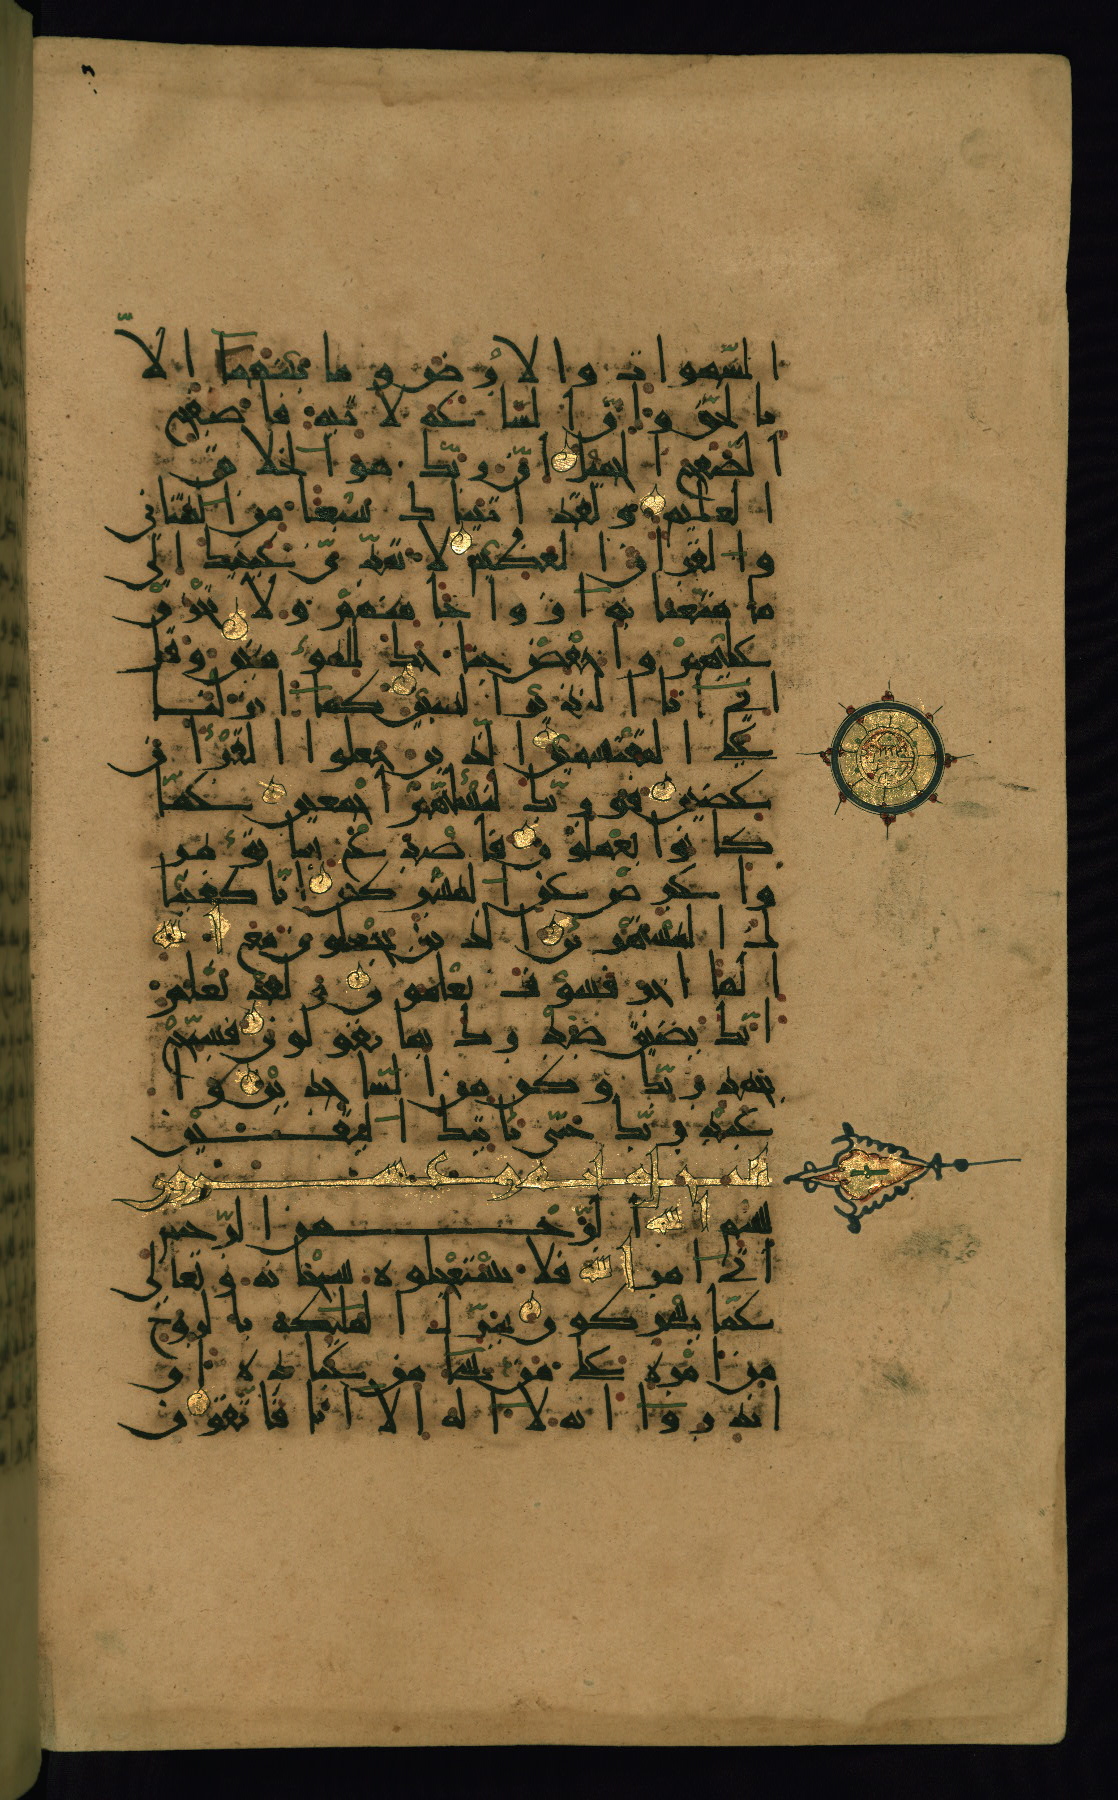 السموات والارض وما بينهما الا
بالحق وان الساعة لاتية فاصفح
الصفح الجميل ان ربك هو الخلاق
العليم ولقد اتيناك سبعا من المثاني
والقران العظيم لا تمدن عينيك الى
ما متعنا به ازواجا منهم ولا تحزن
عليهم واخفض جناحك للمؤمنين وقل
اني انا النذير المبين كما انزلنا
على المقتسمين الذين جعلوا القران
عضين فوربك لنسئلنهم اجمعين عما
كانوا يعملون فاصدع بما تؤمر
واعرض عن المشركين انا كفينا
ك المستهزئين الذين يجعلون مع الله
الها اخر فسوف يعلمون ولقد نعلم
انك يضيق صدرك بما يقولون فسبح
بحمد ربك وكن من الساجدين وا
عبد ربك حتى ياتيك اليقين
بسم الله الرحمن الرحيم
اتى امر الله فلا تستعجلوه سبحانه وتعالى
عما يشركون ينزل الملئكة بالروح
من امره على من يشاء من عباده ان
انذروا انه لا اله الا انا فاتقون